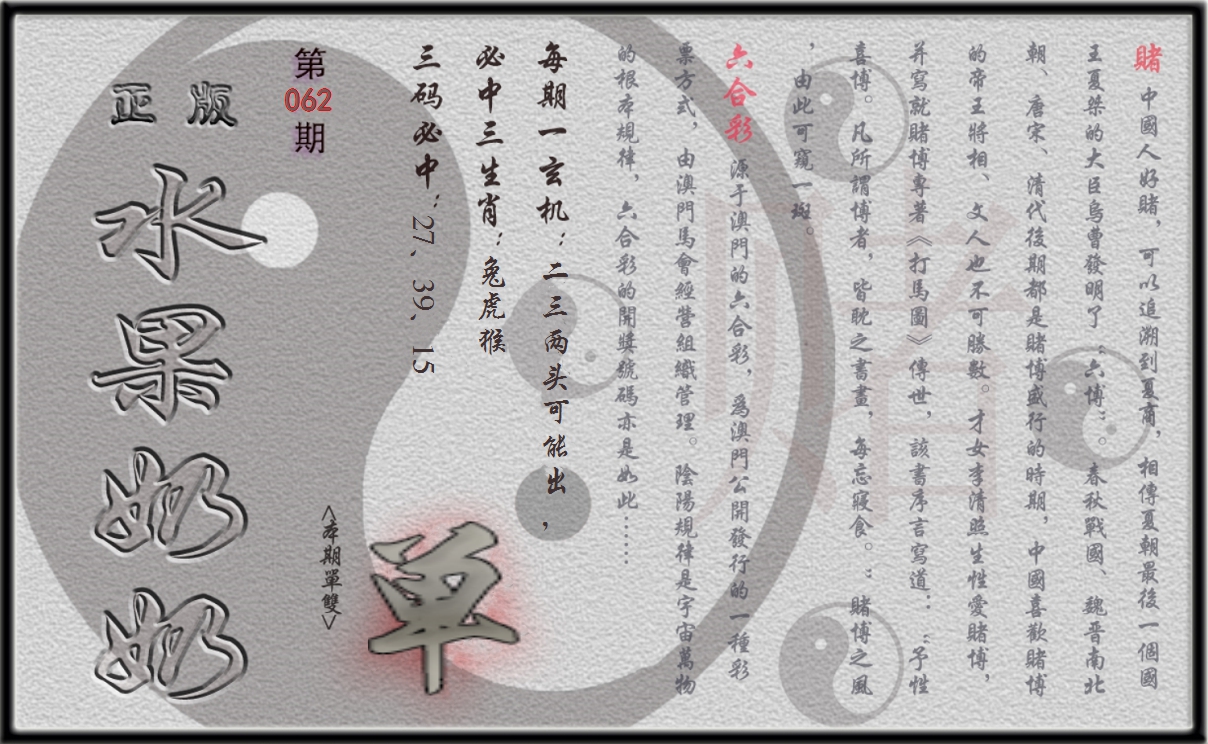 賭 中國人好賭，可以追溯到夏商，相傳夏朝最後一個國
王夏桀的大臣烏曹發明了“六博”。春秋戰國、魏晉南北
朝、唐宋、清代後期都是賭博盛行的時期，中國喜歡賭博
的帝王將相、文人也不可勝數。才女李清照生性愛賭博，
并寫就賭博專著《打馬圖》傳世，該書序言寫道：“予性
喜博。凡所謂博者，皆耽之書畫，每忘寢食。：賭博之風
，由此可窺一斑。
六合彩 源于澳門的六合彩，爲澳門公開發行的一種彩
票方式，由澳門馬會經營組織管理。陰陽規律是宇宙萬物
的根本規律，六合彩的開獎號碼亦是如此……
每期一玄机：二三两头可能出，
必中三生肖：兔虎猴
三码必中：27、39、15
单
<本期單雙>
第
062
期
正版
水果奶奶
賭